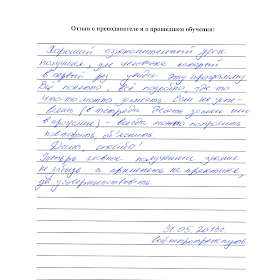 Отзыв о преподавателе и о прошедшем обучении:
Хороший ознакомительный урок
получила, для человека который
в первый раз увидел эту программу.
Всё понятно, всё подробно, где-то
что-то можно упустить если не успе-
ваешь (в тетрадь делать записи или
в программе) - всегда можно попросить
повторить, объяснить.
Дима, спасибо!
Теперь главное полученные знания
не забыть и применить на практике,
да усовершенствовать.
31.05.2013г.